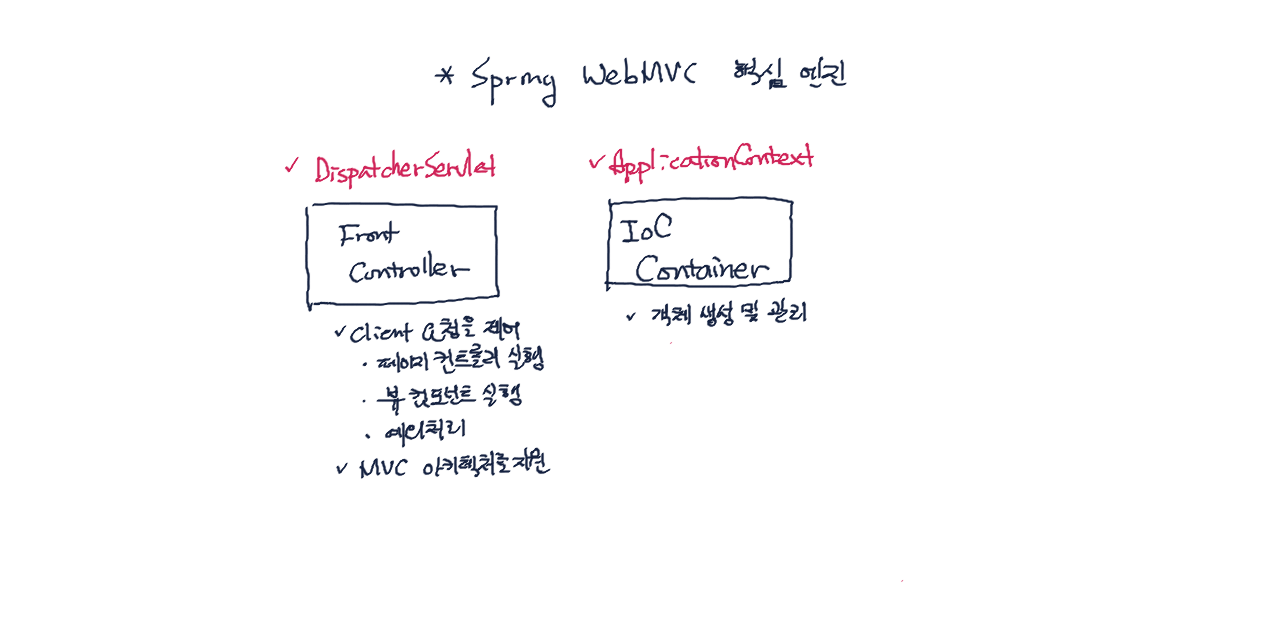 * Spring WebMVC 핵심 엔진
✓ DispatcherServlet
Front
Controller
✓ Client 요청을 제어
· 페이지 컨트롤러 실행
· 뷰 컴포넌트 실행
· 예외처리
✓ MVC 아키텍처를 지원
✓ ApplicationContext
IoC
Container
✓ 객체 생성 및 관리